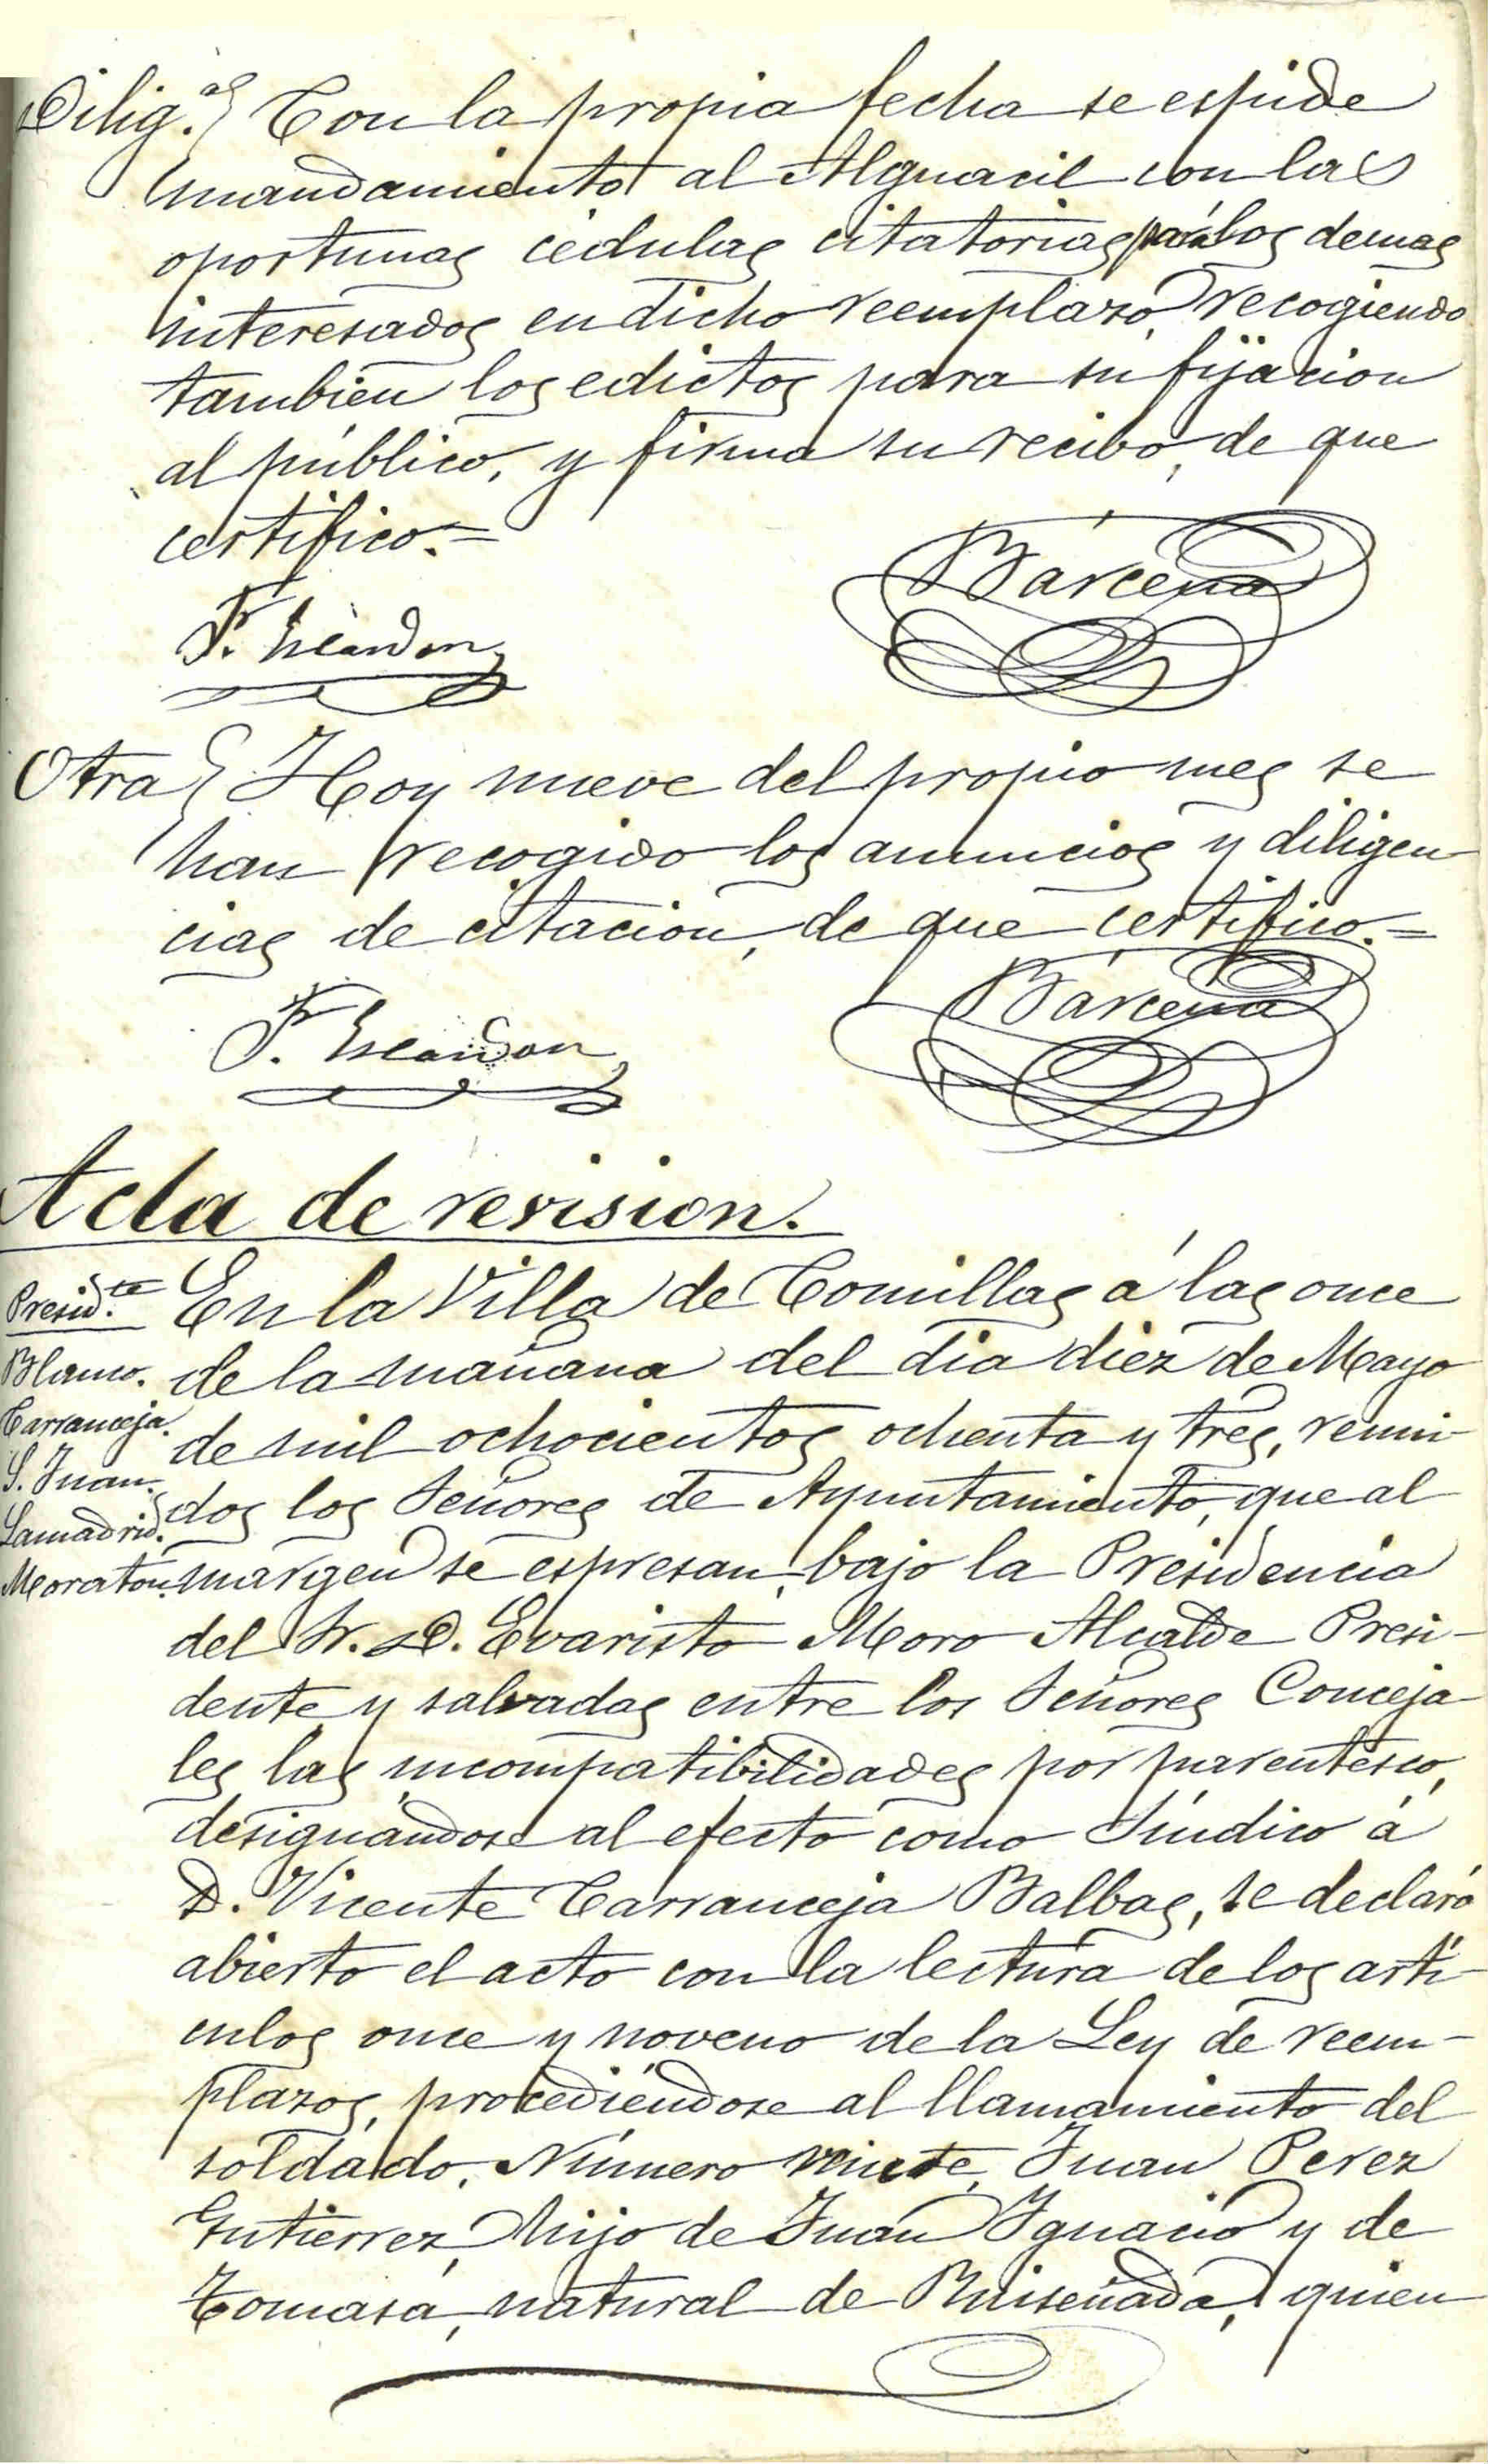 Dilig.ª} Con la propia fecha se espide
mandamiento al Alguacil con las
oportunas cédulas citatorias para los demas
interesados en dicho reemplazo, recogiendo
tambien los edictos para su fijacion
al público, y firma su recibo, de que
certifico.=
Bárcena
F. Escandon
Otra} Hoy nueve del propio mes se
han recogido los anuncios y diligen-
cias de citacion, de que certifico.=
Bárcena
F. Escandon
Acta de revision.
Presid.te
Blanco.
Carranceja.
S. Juan.
Lamadrid.
Moraton.
En la Villa de Comillas á las once
de la mañana del dia diez de Mayo
de mil ochocientos ochenta y tres, reuni-
dos los Señores de Ayuntamiento, que al
margen se espresan, bajo la Presidencia
del Sr. D. Evaristo Moro Alcalde Presi-
dente y salvadas entre los Señores Conceja-
les las incompatibilidades por parentesco,
designándose al efecto como Síndico á
D. Vicente Carranceja Balbas, se declaró
abierto el acto con la lectura de los artí-
culos once y noveno de la Ley de reem-
plazos, procediéndose al llamamiento del
soldado, Número veinte, Juan Perez
Gutierrez, hijo de Juan Ignacio y de
Tomasa, natural de Ruiseñada, quien